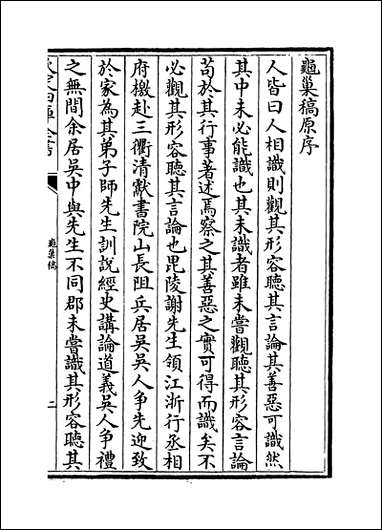 龜巢稿原序
人皆曰人相識則觀其形容聽其言論其善惡可識然
其中未必能識也其未識者雖未嘗觀聽其形容言論
苟於其行事著述焉察之其善惡之實可得而識矣不
必觀其形容聽其言論也毘陵謝先生領江浙行丞相
府檄赴三衢清獻書院山長阻兵居吳吳人爭先迎致
於家為其弟子師先生訓說經史講論道義吳人爭禮
之無間余居吳中與先生不同郡未嘗識其形容聽其
欽定四庫全書
龜巢稿
二